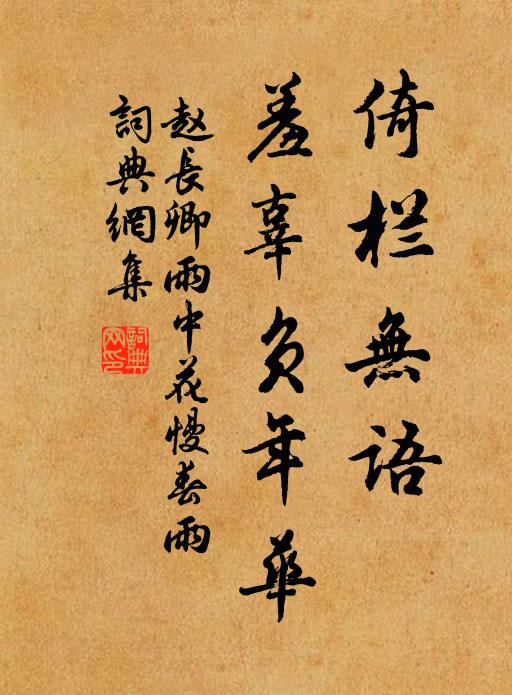 倚栏無語
羞辜负年華
赵長卿雨中花慢春雨
詞典網集
詞典网印